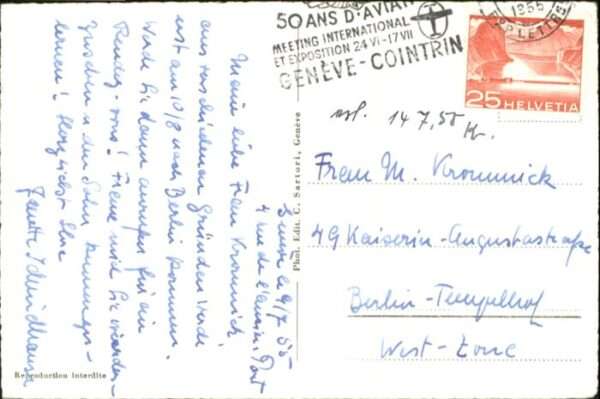 50 ANS D'AVIAT
MEETING INTERNATIONAL
ET EXPOSITION 24 VI-17 VII
GENÈVE-COINTRIN
1955
25 HELVETIA
erh. 14 7.55 Kr.
Frau M. Krommick
49 Kaiserin-Augustastraße
Berlin-Tempelhof
West-Zone
Phot. Edit. C. Sartori, Genève
Genève le 9/7 55
4 rue de l'ancien Port
Meine liebe Frau Krommick,
aus verschiedenen Gründen werde
erst am 10/8 nach Berlin kommen.
Werde Sie dann anrufen für ein
Rendez-vous! Freue mich Sie wieder-
zusehen u. den Sohn kennenzu-
lernen! Herzlichst Ihre
Reproduction interdite